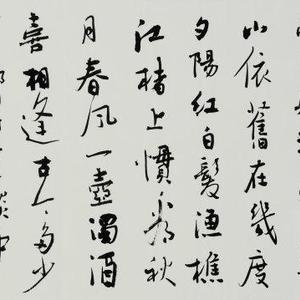 山依舊在幾度
夕陽紅白髮漁樵
江渚上慣看秋
月春風一壺濁酒
喜相逢古今多少
談中